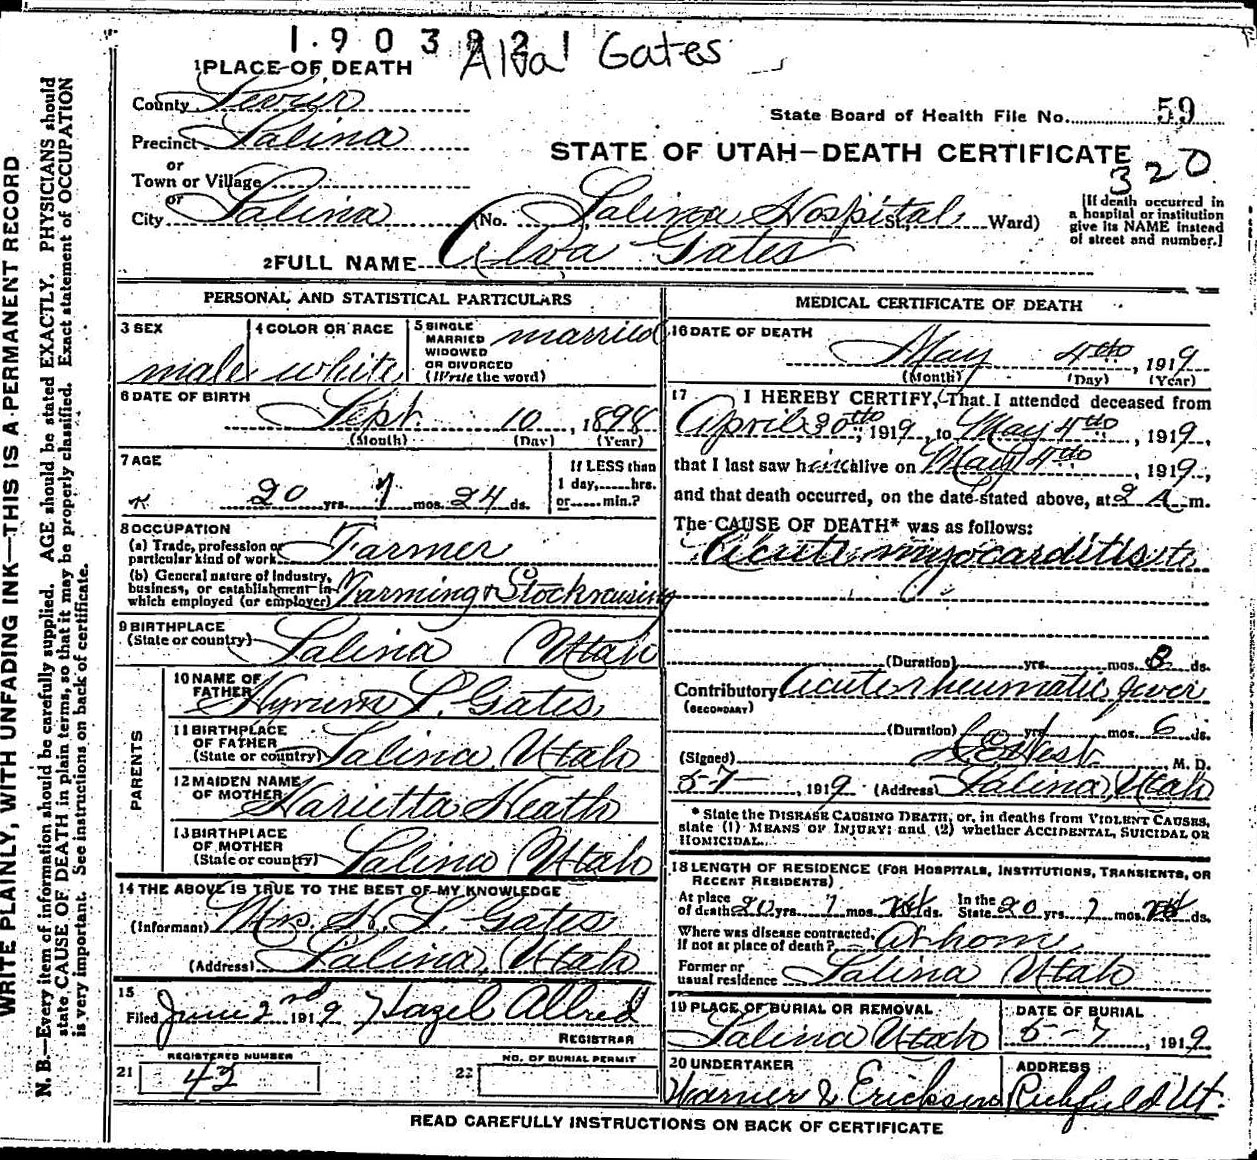 1903921 Alva Gates
1 PLACE OF DEATH
County Sevier
State Board of Health File No. 59
Precinct Salina
STATE OF UTAH—DEATH CERTIFICATE
or
Town or Village
320
or
City Salina (No. Salina Hospital St., Ward)
[If death occurred in
a hospital or institution
give its NAME instead
of street and number.]
2 FULL NAME Alva Gates
PERSONAL AND STATISTICAL PARTICULARS
3 SEX
male
4 COLOR OR RACE
white
5 SINGLE
MARRIED
WIDOWED
OR DIVORCED
(Write the word)
married
6 DATE OF BIRTH
Sept. 10, 1898
(Month) (Day) (Year)
7 AGE
20 yrs. 7 mos. 24 ds.
If LESS than
1 day, hrs.
or min.?
8 OCCUPATION
(a) Trade, profession or
particular kind of work Farmer
(b) General nature of industry,
business, or establishment in
which employed (or employer) Farming & Stockraising
9 BIRTHPLACE
(State or country) Salina Utah
PARENTS
10 NAME OF
FATHER Hyrum S. Gates
11 BIRTHPLACE
OF FATHER
(State or country) Salina, Utah
12 MAIDEN NAME
OF MOTHER Harietta Heath
13 BIRTHPLACE
OF MOTHER
(State or country) Salina Utah
14 THE ABOVE IS TRUE TO THE BEST OF MY KNOWLEDGE
(Informant) Mrs. H. S. Gates
(Address) Salina, Utah
15
Filed June 2nd 1919 Hazel Allred
REGISTRAR
21 REGISTERED NUMBER
43
22 NO. OF BURIAL PERMIT
MEDICAL CERTIFICATE OF DEATH
16 DATE OF DEATH
May 4th, 1919
(Month) (Day) (Year)
17 I HEREBY CERTIFY, That I attended deceased from
April 30th, 1919, to May 4th, 1919,
that I last saw him alive on May 4th, 1919,
and that death occurred, on the date stated above, at 2 A m.
The CAUSE OF DEATH* was as follows:
Acute myocarditis
(Duration) yrs. mos. 3 ds.
Contributory Acute rheumatic fever
(SECONDARY)
(Duration) yrs. mos. 6 ds.
(Signed) West M. D.
5-7, 1919 (Address) Salina, Utah
* State the DISEASE CAUSING DEATH, or, in deaths from VIOLENT CAUSES,
state (1) MEANS OF INJURY; and (2) whether ACCIDENTAL, SUICIDAL OR
HOMICIDAL.
18 LENGTH OF RESIDENCE (FOR HOSPITALS, INSTITUTIONS, TRANSIENTS, OR
RECENT RESIDENTS)
At place
of death 20 yrs. 7 mos. ds. In the
State 20 yrs. 7 mos. ds.
Where was disease contracted,
if not at place of death? At home
Former or
usual residence Salina Utah
19 PLACE OF BURIAL OR REMOVAL
Salina Utah
DATE OF BURIAL
5-7, 1919
20 UNDERTAKER
Warner & Erickson
ADDRESS
Richfield Ut.
READ CAREFULLY INSTRUCTIONS ON BACK OF CERTIFICATE
WRITE PLAINLY, WITH UNFADING INK—THIS IS A PERMANENT RECORD
N. B.—Every item of information should be carefully supplied. AGE should be stated EXACTLY. PHYSICIANS should
state CAUSE OF DEATH in plain terms, so that it may be properly classified. Exact statement of OCCUPATION
is very important. See instructions on back of certificate.